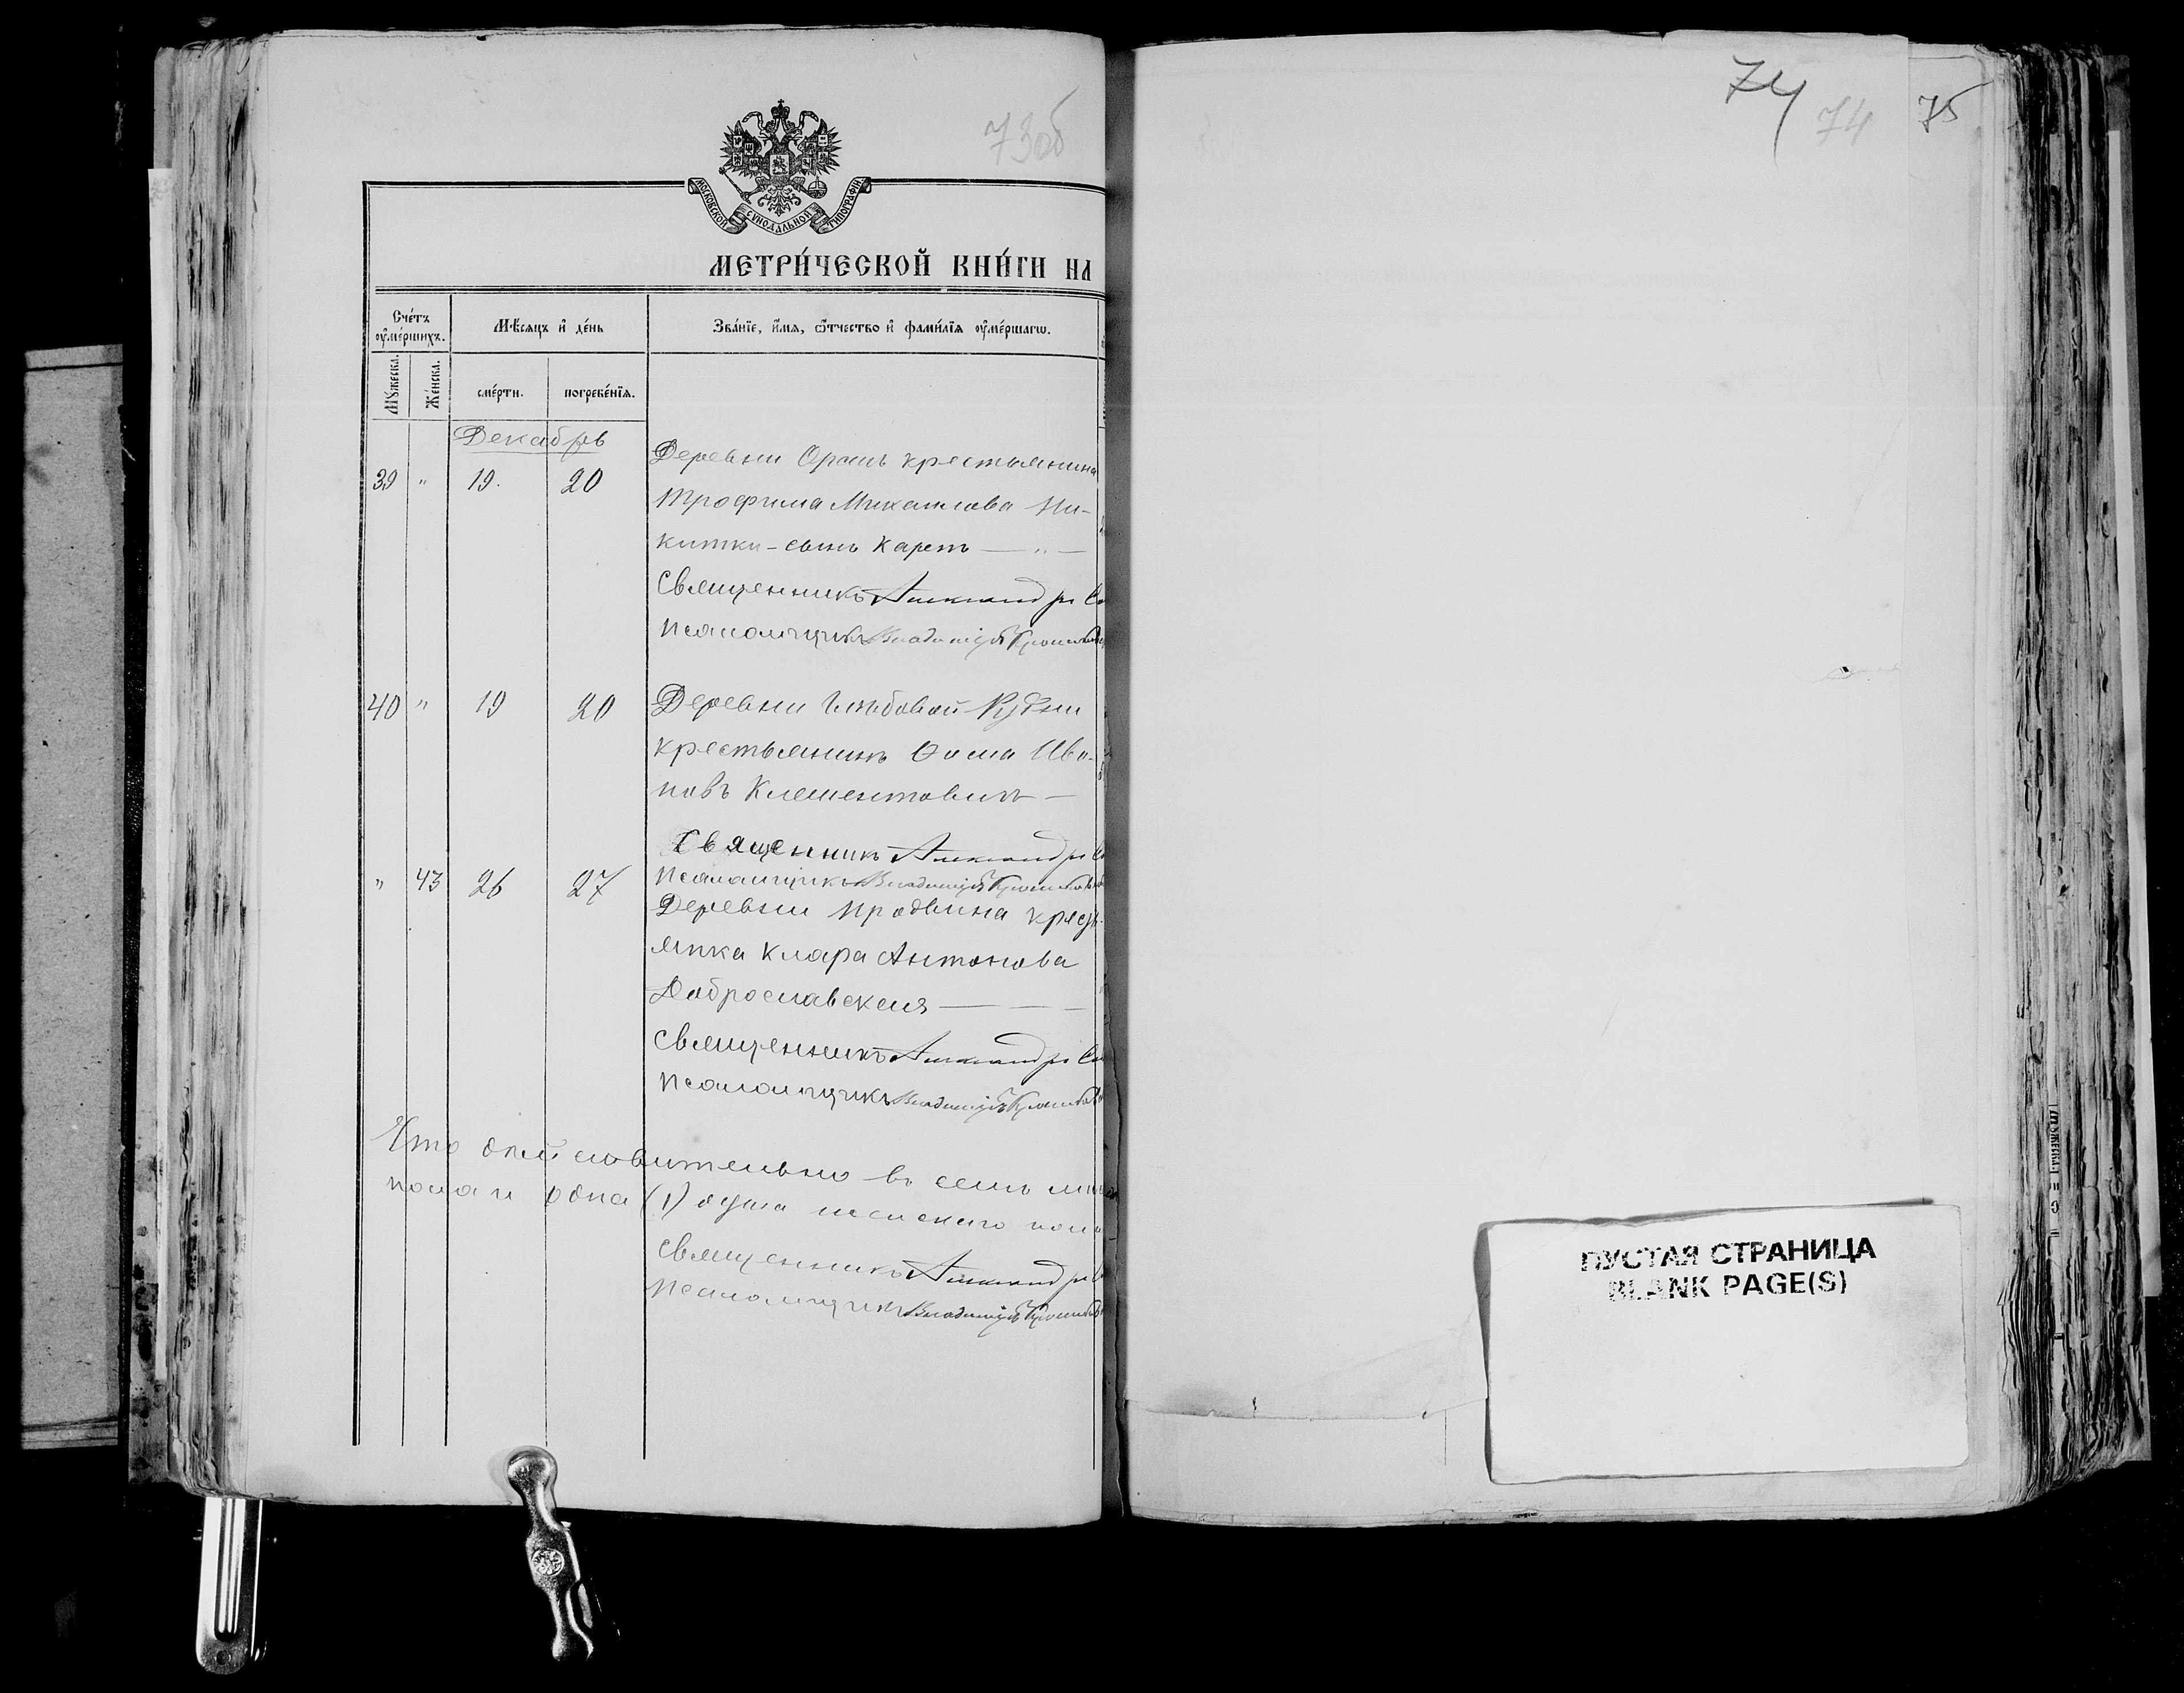 73об
74
74
75
МОСКОВСКОЙ СѴНОДАЛЬНОЙ ТИПОГРАФІИ
МЕТРИ́ЧЕСКОЙ КНИ́ГИ НА
Сче́тъ ᲂу҆ме́ршихъ.
Мѣ́сяцъ и҆ де́нь
Зва́нїе, и҆́мя, ѻ҆́тчество и҆ фами́лїя ᲂу҆ме́ршагѡ.
Мꙋ́жеска.
Же́нска.
сме́рти.
погребе́нїя.
Декабрь
39 " 19. 20
Деревни крестьянина
Трофима Михаилова Ни-
китки - сынъ Карпъ — " —
Священникъ Александръ
Псаломщикъ Владиміръ
40 " 19 20
Деревни Рудни
крестьянинъ Ѳома Ива-
новъ Климентовичъ —
Священникъ Александръ
Псаломщикъ Владиміръ
" 43 26 27
Деревни
янка Клара Антонова
Доброславская —
Священникъ Александръ
Псаломщикъ Владиміръ
Что действительно въ семъ
пола и одна (1) душа женскаго пола
Священникъ Александръ
Псаломщикъ Владиміръ
ПУСТАЯ СТРАНИЦА
BLANK PAGE(S)